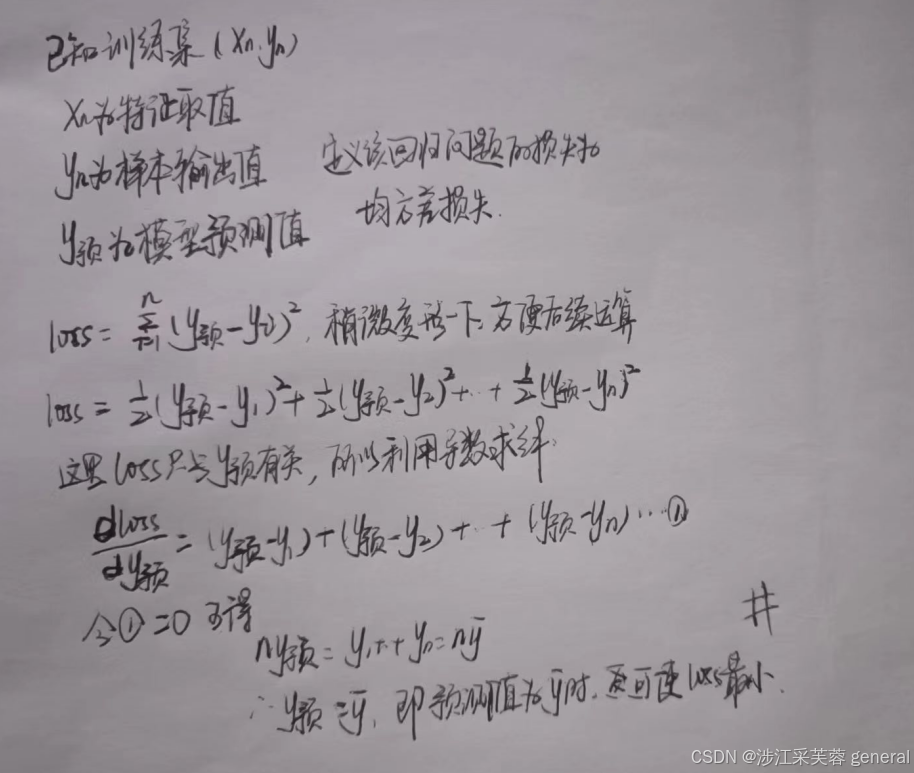 已知训练集 (xn, yn)
xn为特证取值
yn为样本输出值
y预为模型预测值
定义该回归问题的损失为
均方差损失.
loss = Σ_{i=1}^{n} (y预 - yi)², 稍微变形一下, 方便后续运算
loss = 1/2 (y预 - y1)² + 1/2 (y预 - y2)² + ... + 1/2 (y预 - yn)²
这里loss只与y预有关, 所以利用导数求解.
dloss/dy预 = (y预 - y1) + (y预 - y2) + ... + (y预 - yn) ... ①
令① = 0 可得
ny预 = y1 + ... + yn = nȳ
∴ y预 = ȳ, 即预测值为ȳ时, 可使loss最小.
#
CSDN @涉江采芙蓉 general